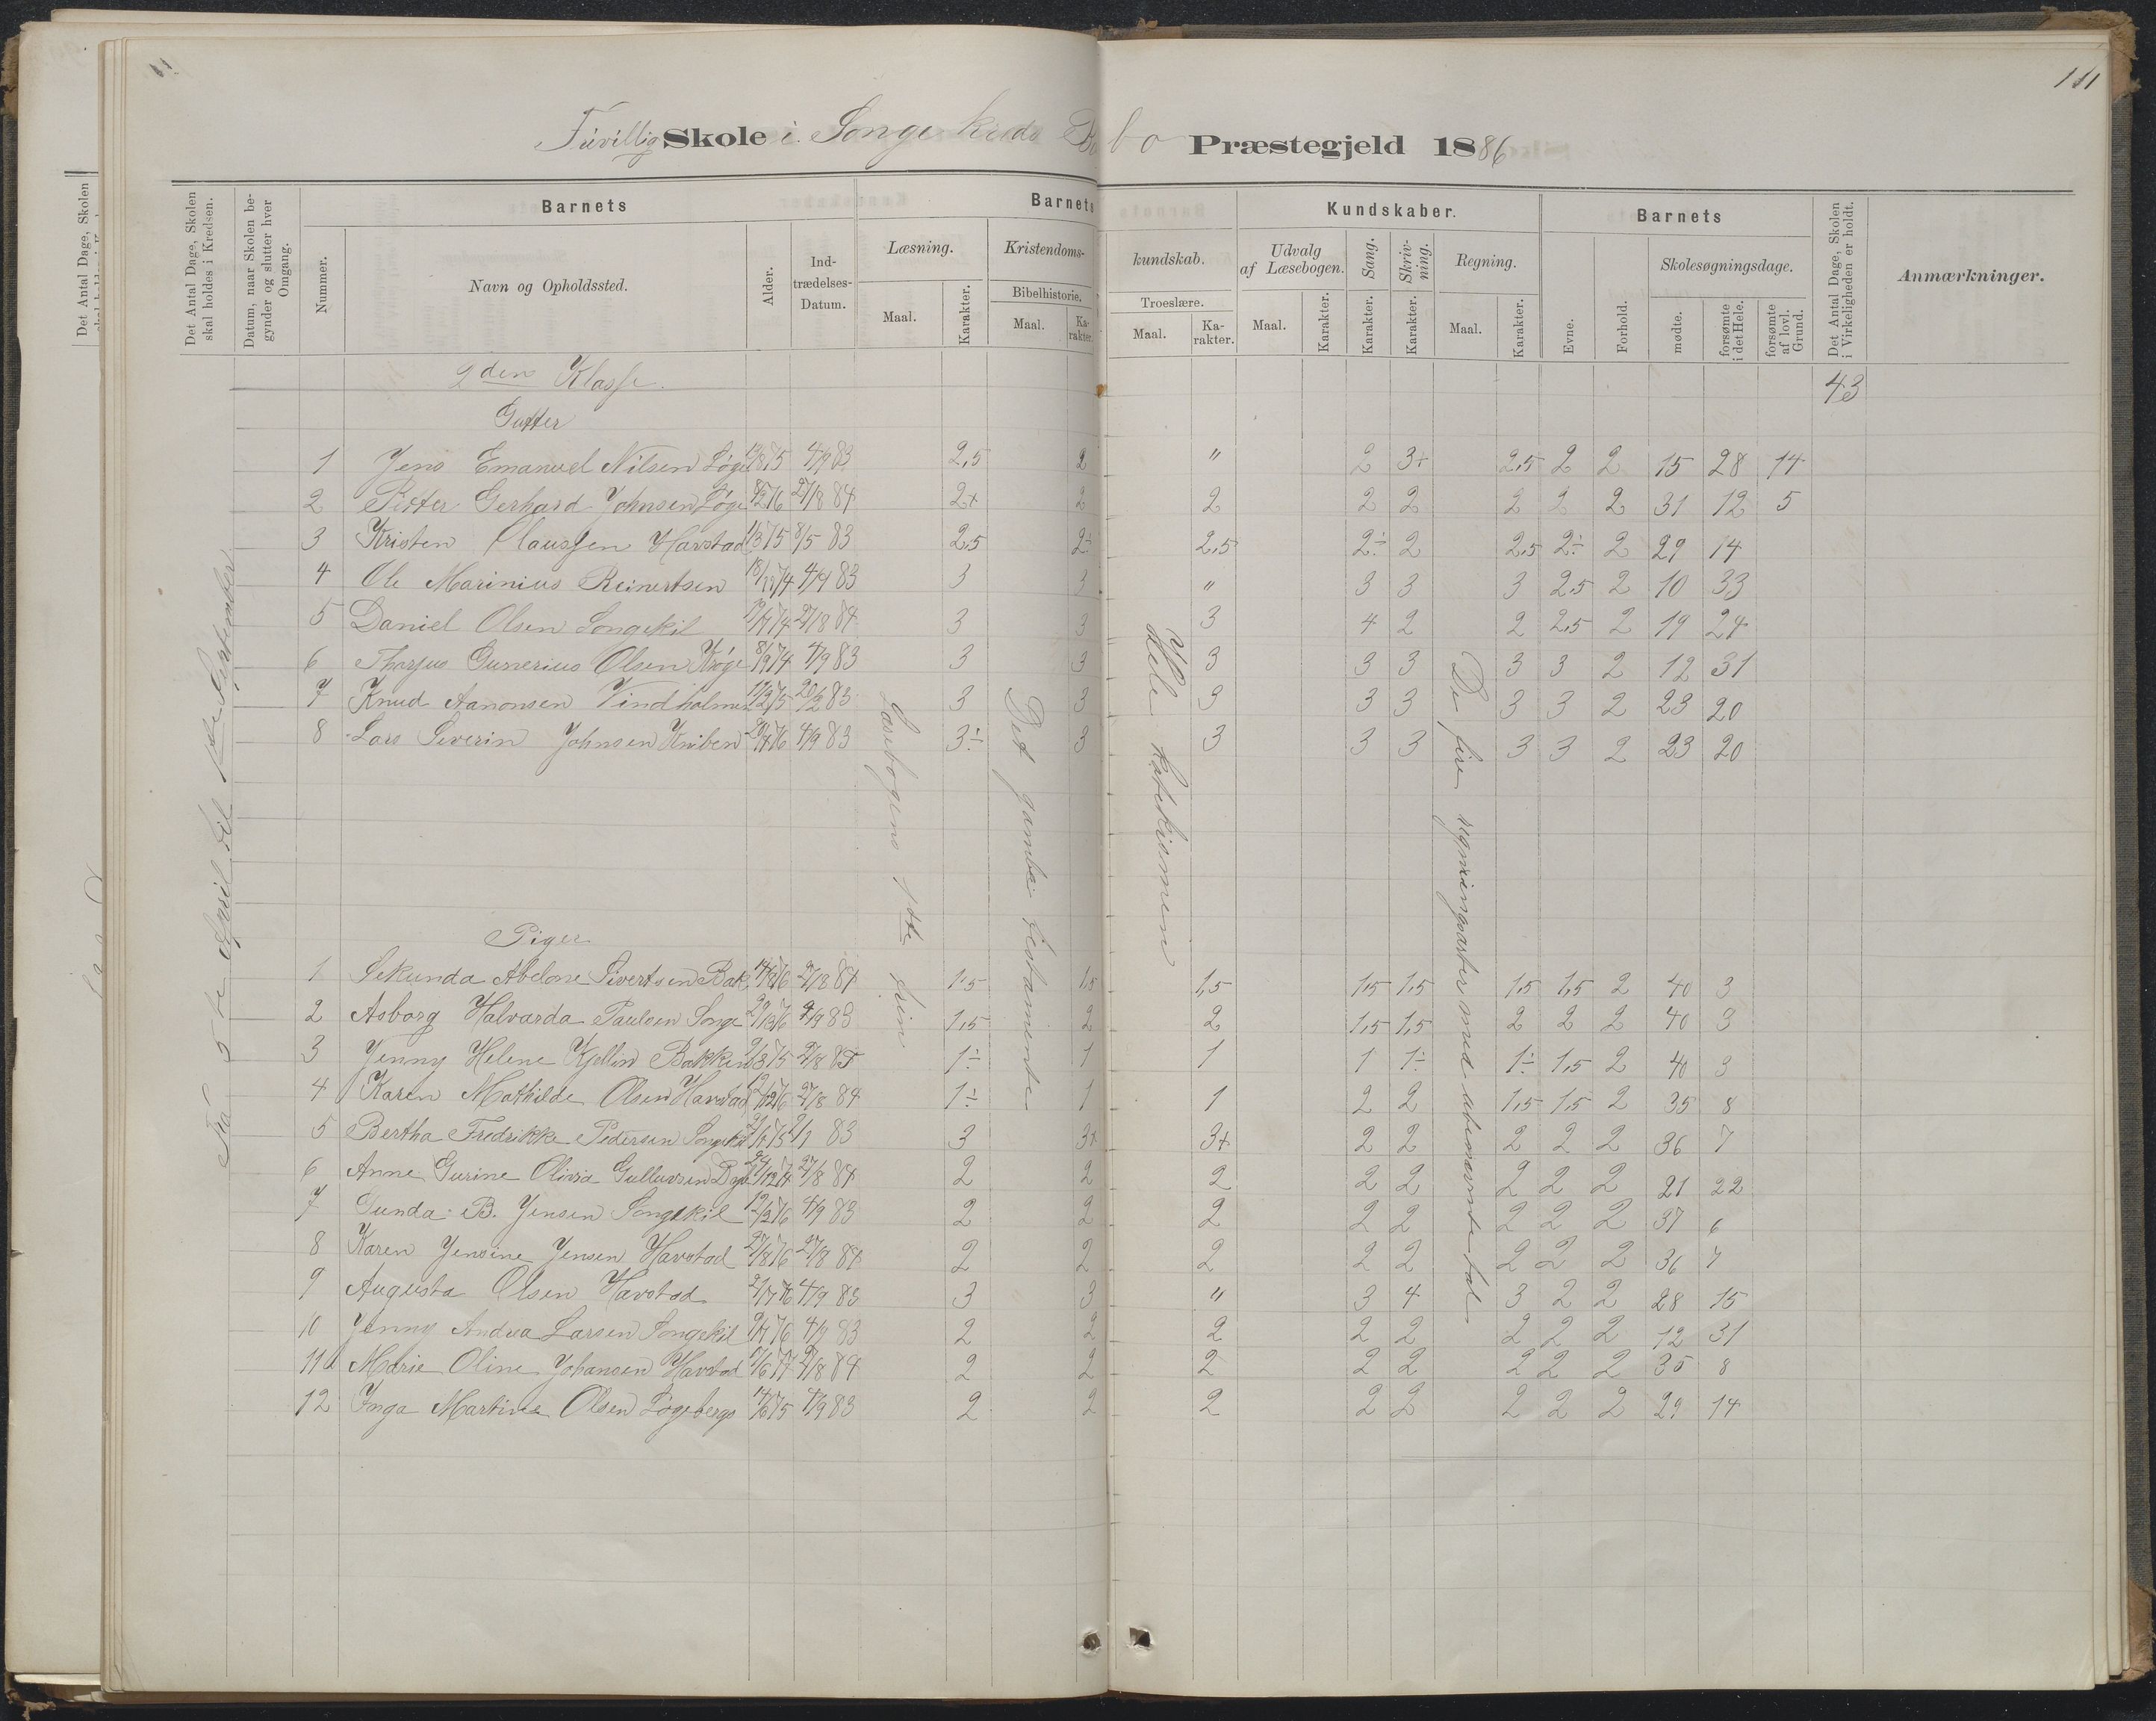 111
Frivillig Skole i Songe kreds Præstegjeld 1886
Det Antal Dage, Skolen skal holdes i Kredsen.
Datum, naar Skolen begynder og slutter hver Omgang.
Barnets
Nummer.
Navn og Opholdssted.
Alder.
Indtrædelses-Datum.
Barnets Kundskaber.
Læsning.
Maal.
Karakter.
Kristendomskundskab.
Bibelhistorie.
Maal.
Karakter.
Troeslære.
Maal.
Karakter.
Udvalg af Læsebogen.
Maal.
Karakter.
Sang.
Karakter.
Skrivning.
Karakter.
Regning.
Maal.
Karakter.
Barnets
Evne.
Forhold.
Skolesøgningsdage.
mødte.
forsømte i det Hele.
forsømte af lovl. Grund.
Det Antal Dage, Skolen i Virkeligheden er holdt.
Anmærkninger.
2den Klasse. 43
Gutter
1 Jens Emanuel Nilsen 4/9 83 2,5 2 " 2 3+ 2,5 2 2 15 28 14
2 Petter Gerhard Johnsen 27/8 84 2+ 2 2 2 2 2 2 2 31 12 5
3 Kristen Claussen Havstad 8/5 83 2,5 2÷ 2,5 2÷ 2 2,5 2÷ 2 29 14
4 Ole Marinius Reinertsen 83 3 3 " 3 3 3 2,5 2 10 33
5 Daniel Olsen Songekil 27/8 84 3 3 3 4 2 2 2,5 2 19 24
6 Gunerius Olsen 8/9 74 4/9 83 3 3 3 3 3 3 3 2 12 31
7 Knud Aanonsen Vindholmen 83 3 3 3 3 3 3 3 2 23 20
8 Lars Severin Johnsen Kniben 4/9 83 3÷ 3 3 3 3 3 3 2 23 20
Piger
1 Sekunda Abelone Sivertsen Bak 27/8 84 1,5 1,5 1,5 1,5 1,5 1,5 1,5 2 40 3
2 Asborg Halvarda Paulsen Songe 83 1,5 2 2 1,5 1,5 2 2 2 40 3
3 Jenny Helene Kjellin Bakken 1÷ 1 1 1 1÷ 1÷ 1,5 2 40 3
4 Karen Mathilde Olsen Havstad 27/8 84 1÷ 1 1 2 2 1,5 1,5 2 35 8
5 Bertha Fredrikke Pedersen Songekil 83 3 3+ 3+ 2 2 2 2 2 36 7
6 Anne Gurine Olivia 27/8 84 2 2 2 2 2 2 2 2 21 22
7 Gunda B. Jensen Songekil 12/2 76 4/9 83 2 2 2 2 2 2 2 2 37 6
8 Karen Jensine Jensen Havstad 27/8 76 27/8 84 2 2 2 2 2 2 2 2 36 7
9 Augusta Olsen Havstad 4/9 83 3 3 " 3 4 3 2 2 28 15
10 Jenny Andrea Larsen Songekil 4/9 83 2 2 2 2 2 2 2 2 12 31
11 Marie Oline Johansen Havstad 27/8 84 2 2 2 2 2 2 2 2 35 8
12 Inga Martine Olsen 4/9 83 2 2 2 2 2 2 2 2 29 14
Fra 5te April til 1ste September
Læsebogens 1ste
Det gamle testamente
Hele katekismen
De fire regningsarter med ubenævnte tal